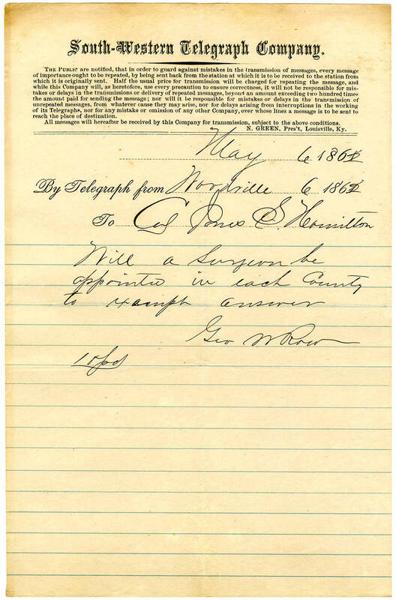 South-Western Telegraph Company.
THE PUBLIC are notified, that in order to guard against mistakes in the transmission of messages, every message
of importance ought to be repeated, by being sent back from the station at which it is to be received to the station from
which it is originally sent. Half the usual price for transmission will be charged for repeating the message, and
while this Company will, as heretofore, use every precaution to ensure correctness, it will not be responsible for mis-
takes or delays in the transmission or delivery of repeated messages, beyond an amount exceeding two hundred times
the amount paid for sending the message; nor will it be responsible for mistakes or delays in the transmission of
unrepeated messages, from whatever cause they may arise, nor for delays arising from interruptions in the working
of its Telegraphs, nor for any mistake or omission of any other Company, over whose lines a message is to be sent to
reach the place of destination.
All messages will hereafter be received by this Company for transmission, subject to the above conditions.
N. GREEN, Pres't, Louisville, Ky.
May 6 186
By Telegraph from Woodville 6 186
To Col Jones S. Hamilton
Will a Surgeon be
appointed in each County
to exempt answer
Geo W
10 pd